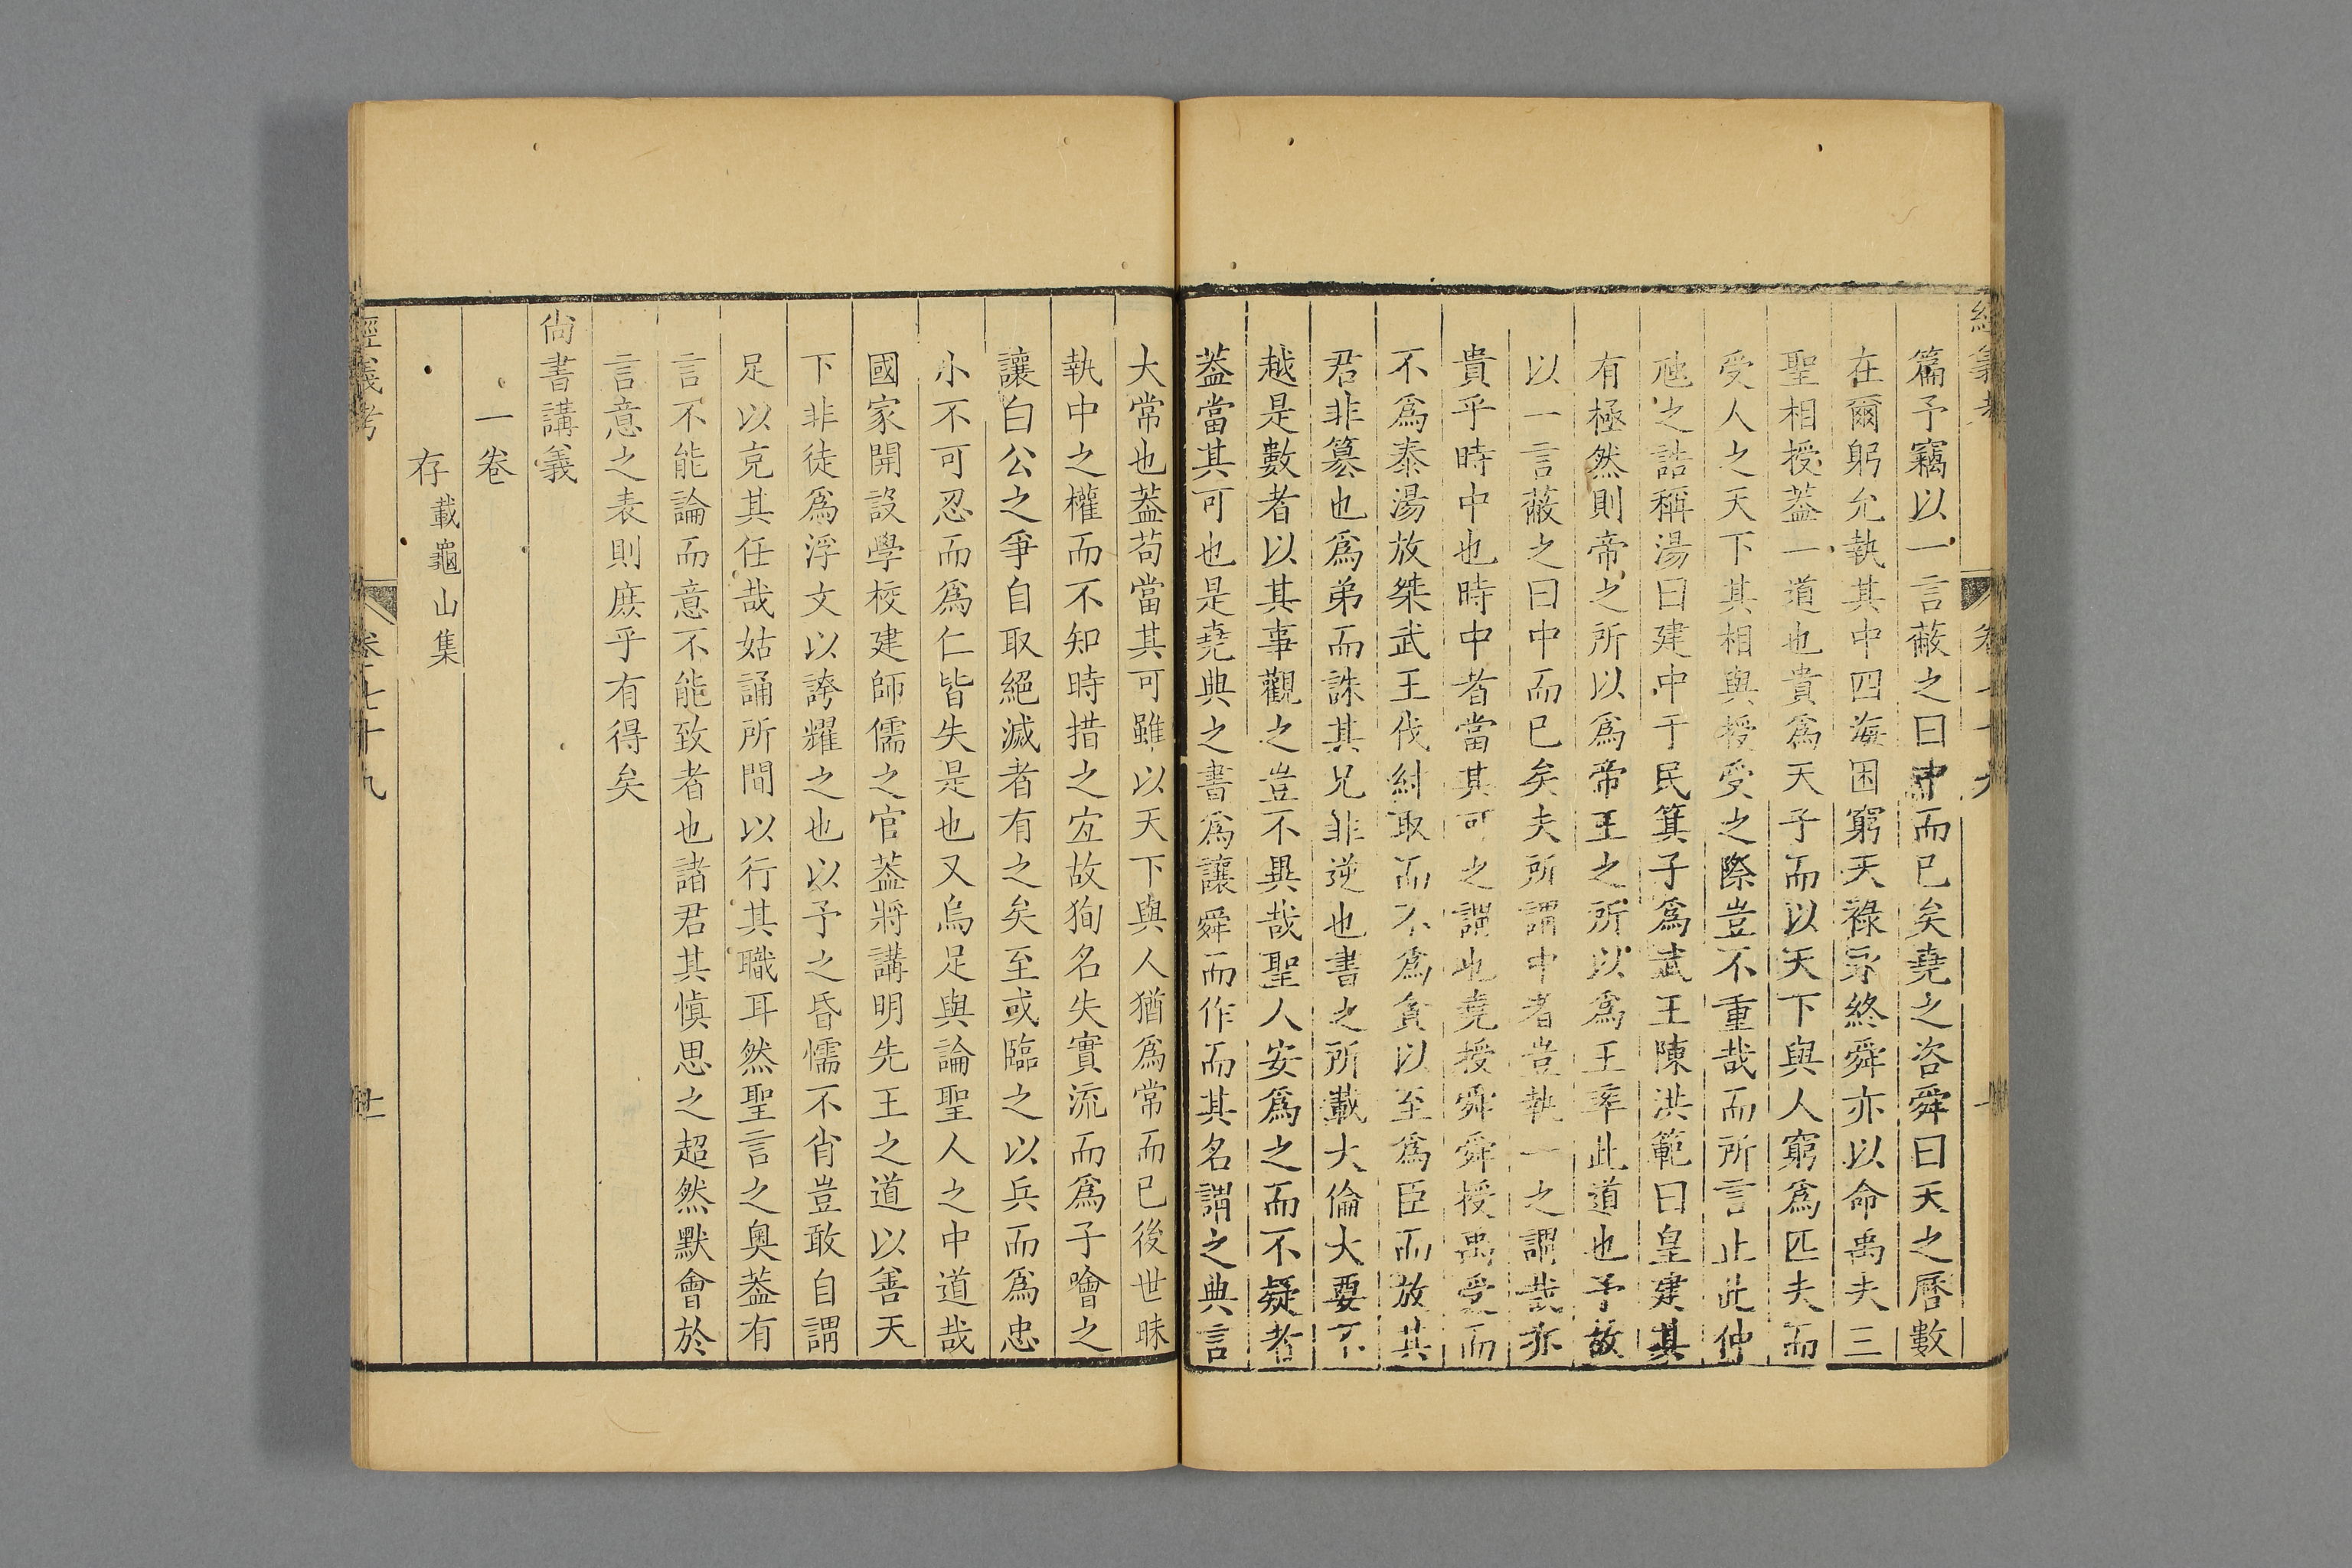 篇予竊以一言蔽之曰中而已矣堯之咨舜曰天之曆數
在爾躬允執其中四海困窮天祿永終舜亦以命禹夫三
聖相授葢一道也貴爲天子而以天下與人窮爲匹夫而
受人之天下其相與授受之際豈不重哉而所言止此仲
虺之誥稱湯曰建中于民箕子爲武王陳洪範曰皇建其
有極然則帝之所以爲帝王之所以爲王率此道也予故
以一言蔽之曰中而已矣夫所謂中者豈執一之謂哉亦
貴乎時中也時中者當其可之謂也堯授舜舜授禹受而
不爲泰湯放桀武王伐紂取而不爲貪以至爲臣而放其
君非簒也爲弟而誅其兄非逆也書之所載大倫大要不
越是數者以其事觀之豈不異哉聖人安爲之而不疑者
葢當其可也是堯典之書爲讓舜而作而其名謂之典言
大常也葢苟當其可雖以天下與人猶爲常而已後世昧
執中之權而不知時措之宜故狥名失實流而爲子噲之
讓白公之爭自取絕滅者有之矣至或臨之以兵而爲忠
小不可忍而爲仁皆失是也又烏足與論聖人之中道哉
國家開設學校建師儒之官葢將講明先王之道以善天
下非徒爲浮文以誇耀之也以予之昏懦不肖豈敢自謂
足以克其任哉姑誦所聞以行其職耳然聖言之奧葢有
言不能論而意不能致者也諸君其慎思之超然默會於
言意之表則庶乎有得矣
尚書講義
一卷
存載龜山集
經義考 卷七十九